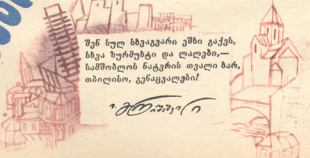 შენ სულ სხვაგვარი ეშხი გაქვს,
სხვა ზურმუხტი და ლალები,—
სამშობლოს ნატვრის თვალი ხარ,
თბილისო, გენაცვალები!